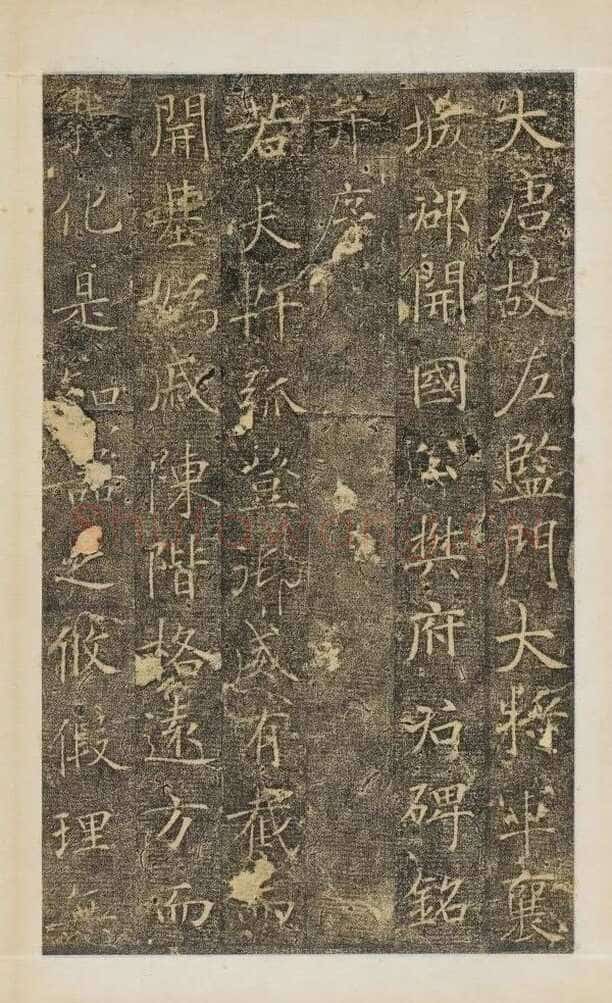 大唐故左監門大將軍襄
城郡開國公樊府君碑銘
并序
若夫軒弧登御威有截而
開媯戚陳階格遠方而
化是知之攸假理無